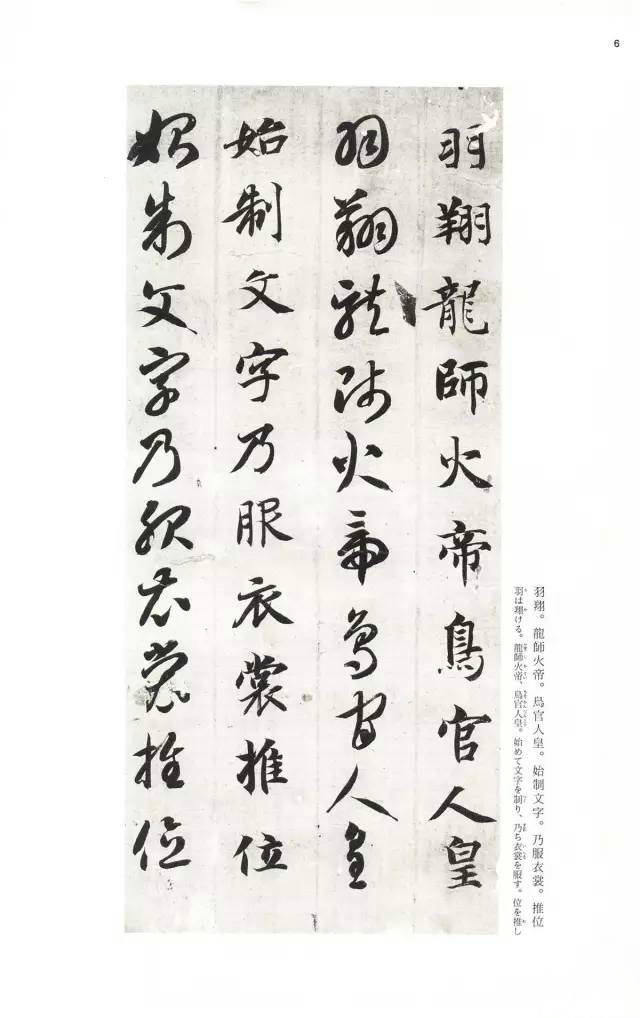 6
羽翔龍師火帝鳥官人皇
羽翔龍師火帝鳥官人皇
始制文字乃服衣裳推位
始制文字乃服衣裳推位
羽翔。龍師火帝。鳥官人皇。始制文字。乃服衣裳。推位
羽は翔ける。龍師火帝、鳥官人皇。始めて文字を制り、乃ち衣裳を服す。位を推し